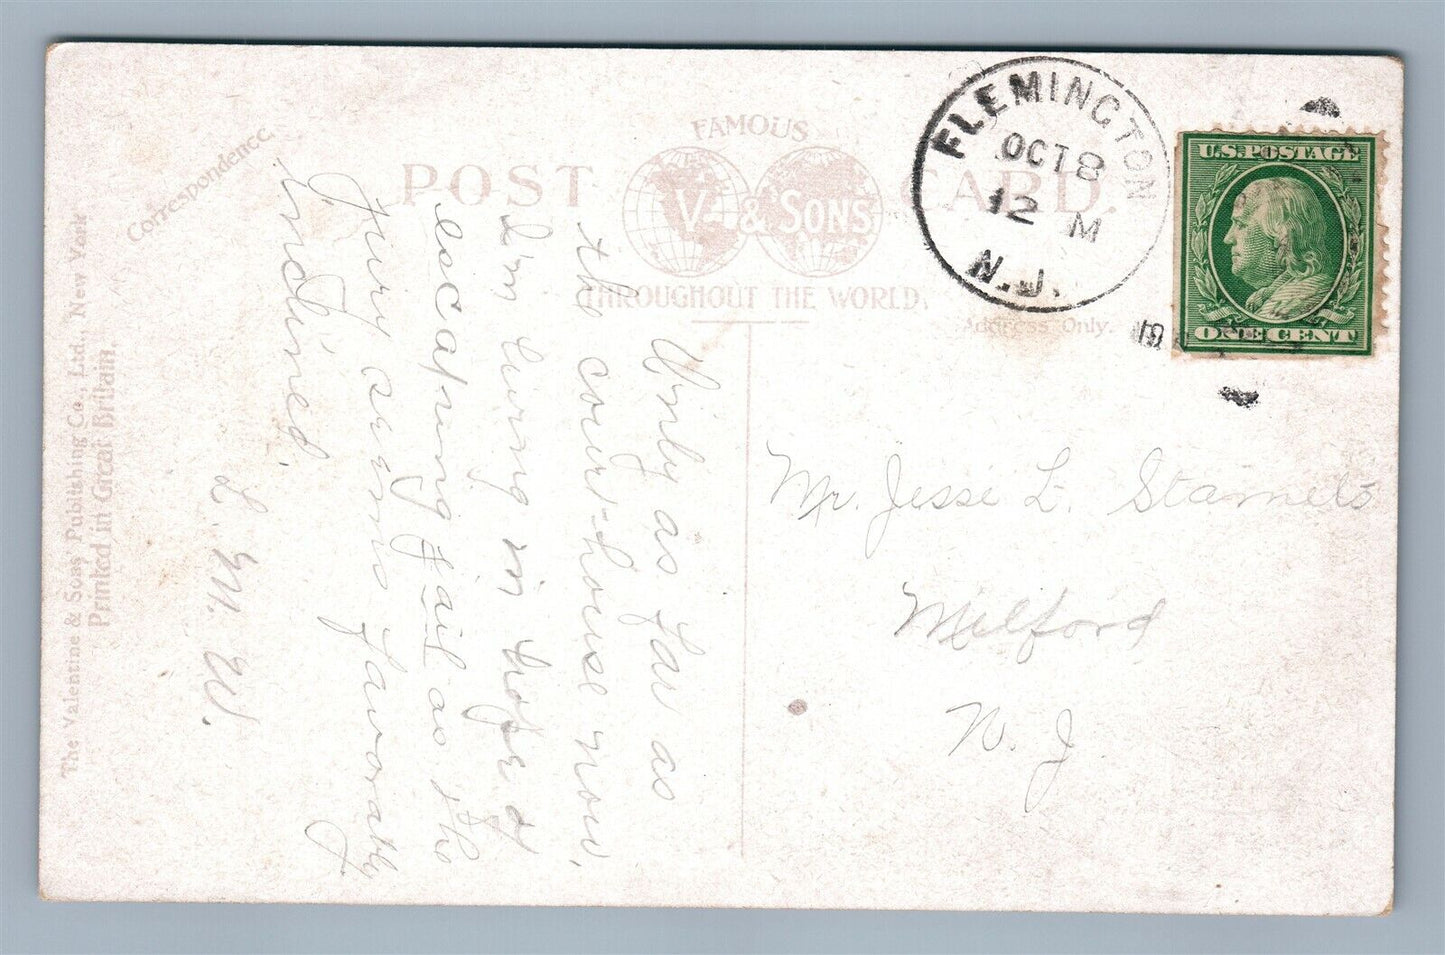 Correspondence.
FAMOUS
POST CARD.
V. & SONS
THROUGHOUT THE WORLD.
Address Only.
FLEMINGTON
OCT 8
12 M
N.J.
U.S. POSTAGE
ONE CENT
The Valentine & Sons' Publishing Co., Ltd., New York
Printed in Great Britain.
Only as far as
the court-house now.
I'm living in hope of
escaping jail as the
jury seems favorably
inclined.
L. M. W.
Mr. Jesse L. Stamets
Milford
N. J